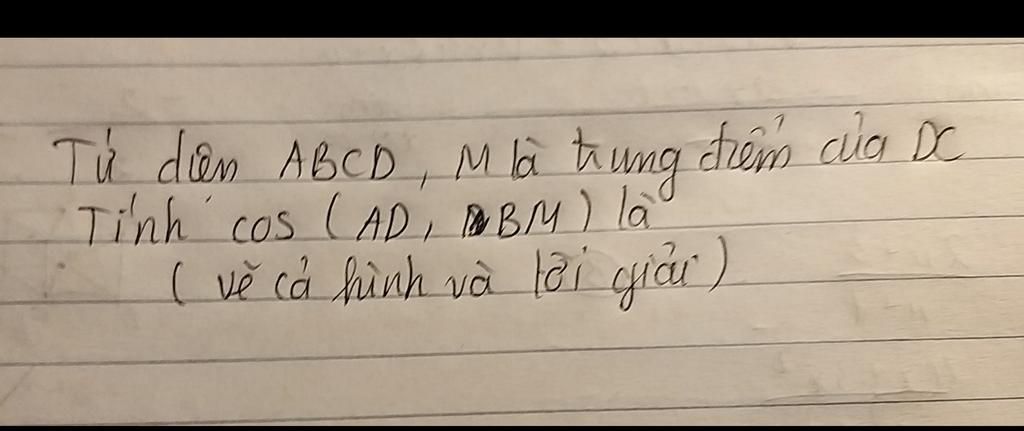 Tứ diên ABCD, M là trung điểm của DC
Tính cos (AD, BM) là
(vẽ cả hình và lời giải)